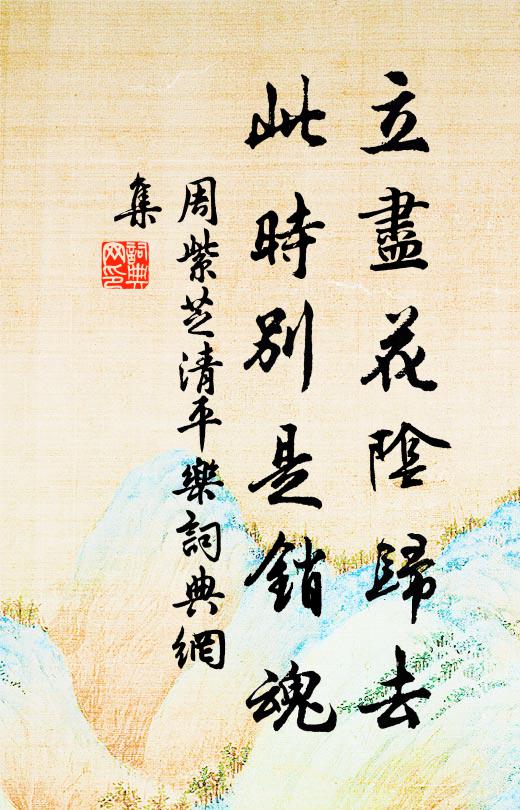 立盡花陰歸去
此時別是銷魂
周紫芝清平樂詞典網
集
詞典网印